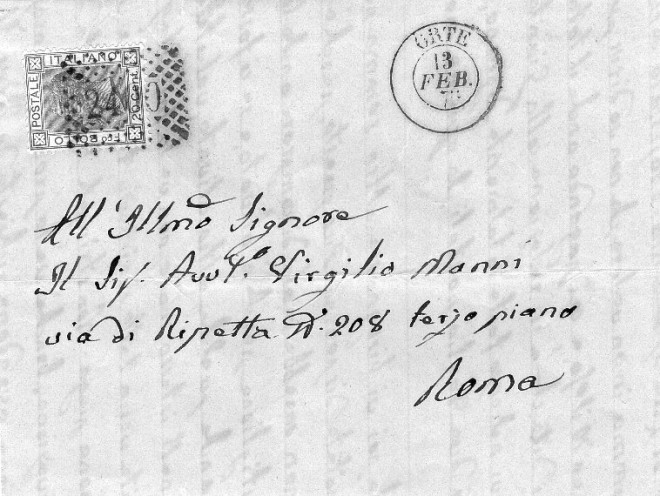 POSTALE ITALIANO
FCO BOLLO
20 Cent.
ORTE
13
FEB.
All' Illmo Signore
Il Sig. Avvto. Virgilio Manni
via di Ripetta N. 208 terzo piano
Roma